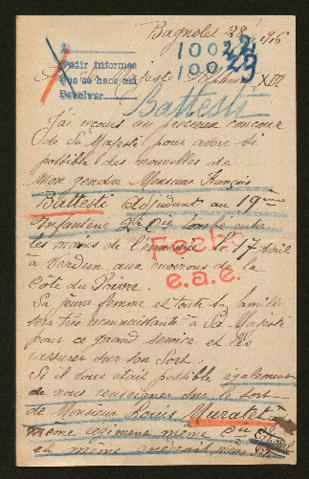 Bagnoles 28 1916
1
Pedir informes
que se hace así
Resolver
10022
10023
Sa Majesté Alphonse XIII
Battesti
J'ai recours au précieux concours
de Sa Majesté pour avoir si
possible des nouvelles de
Mon gendre Monsieur François
Battesti adjudant au 19ème
Infanterie 2e Cie tombé entre
les mains de l'ennemi le 17 Avril
à Verdun aux environs de la
Côte du Poivre.
Fecha
e.a.e.
Sa jeune femme et toute sa famille
sera très reconnaissante à Sa Majesté
pour ce grand service et les
rassurer sur son Sort.
Si il vous était possible également
de nous renseigner sur le sort
de Monsieur Louis Muratet
même régiment même Cie
et même endroit même